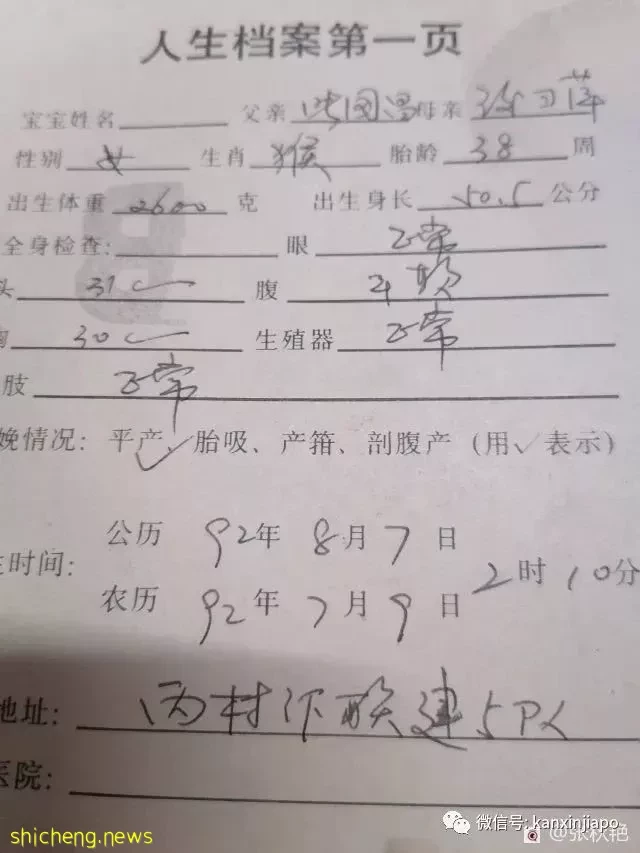 人生档案第一页
宝宝姓名 父亲 母亲
性别 女 生肖 猴 胎龄 38 周
出生体重 2600 克 出生身长 50.5 公分
全身检查: 眼 正常
头 31 腹 平软
胸 30 生殖器 正常
肢 正常
娩情况: 平产✓、胎吸、产箝、剖腹产 (用✓表示)
公历 92年 8月7日
生时间: 2时10分
农历 92年7月9日
地址: 联建5队
医院:
微信号: kanxinjiapo
@张秋艳
shicheng.news